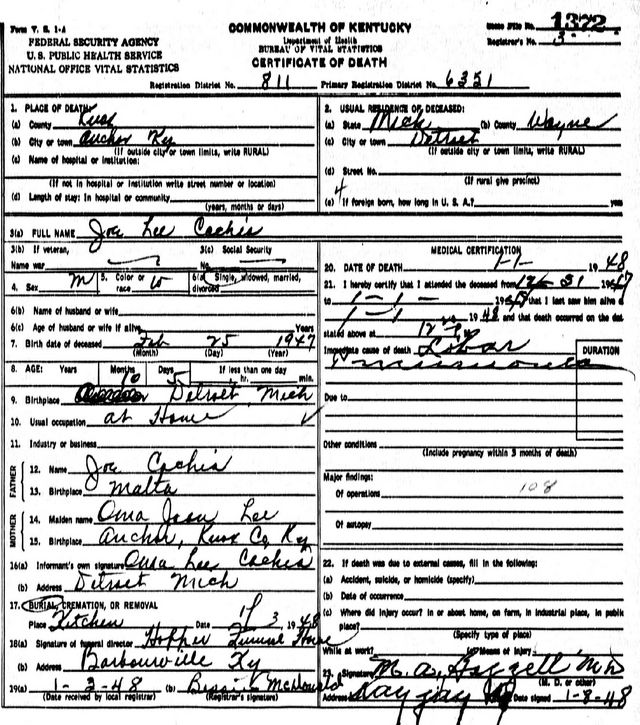 Form V. S. 1-A
FEDERAL SECURITY AGENCY
U. S. PUBLIC HEALTH SERVICE
NATIONAL OFFICE VITAL STATISTICS
COMMONWEALTH OF KENTUCKY
Department of Health
BUREAU OF VITAL STATISTICS
CERTIFICATE OF DEATH
1372
Registrar's No. 3
Registration District No. 811 Primary Registration District No. 6351
1. PLACE OF DEATH
(a) County Knox
(b) City or town Anchor Ky
(If outside city or town limits, write RURAL)
(c) Name of hospital or institution:
(If not in hospital or institution write street number or location)
(d) Length of stay: In hospital or community
(years, months or days)
2. USUAL RESIDENCE OF DECEASED:
(a) State Mich (b) County Wayne
(c) City or town Detroit
(If outside city or town limits, write RURAL)
(d) Street No.
(If rural give precinct)
(e) If foreign born, how long in U. S. A.? years
3(a) FULL NAME Joe Lee Cachia
3(b) If veteran, Name war
3(c) Social Security No.
4. Sex M 5. Color or race W 6(a) Single, widowed, married, divorced
6(b) Name of husband or wife
6(c) Age of husband or wife if alive Years
7. Birth date of deceased Feb 25 1947
(Month) (Day) (Year)
8. AGE: Years Months 10 Days 5 If less than one day hr. min.
9. Birthplace Detroit, Mich
10. Usual occupation at Home
11. Industry or business
FATHER
12. Name Joe Cachia
13. Birthplace Malta
MOTHER
14. Maiden name Oma Lee
15. Birthplace Anchor, Knox Co, Ky
16(a) Informant's own signature Oma Lee Cachia
(b) Address Detroit Mich
17. BURIAL, CREMATION, OR REMOVAL
Place Kitchen Date 1/3 1948
18(a) Signature of funeral director Hopper Funeral Home
(b) Address Barbourville Ky
19(a) 1-3-48 (b) McDonald
(Date received by local registrar) (Registrar's signature)
MEDICAL CERTIFICATION
20. DATE OF DEATH 1-1- 1948
21. I hereby certify that I attended the deceased from 12-31 1947
to 1-1- 1948 that I last saw him alive
1-1 1948 and that death occurred on the date
stated above at
Immediate cause of death Lobar
Pneumonia
DURATION
Due to
Other conditions
(Include pregnancy within 3 months of death)
Major findings:
Of operations 108
Of autopsy
22. If death was due to external causes, fill in the following:
(a) Accident, suicide, or homicide (specify)
(b) Date of occurrence
(c) Where did injury occur? In or about home, on farm, in industrial place, in public
place?
(Specify type of place)
While at work? (e) Means of injury
23. Signature M. A.
(M. D. or other)
Address Date signed 1-8-48